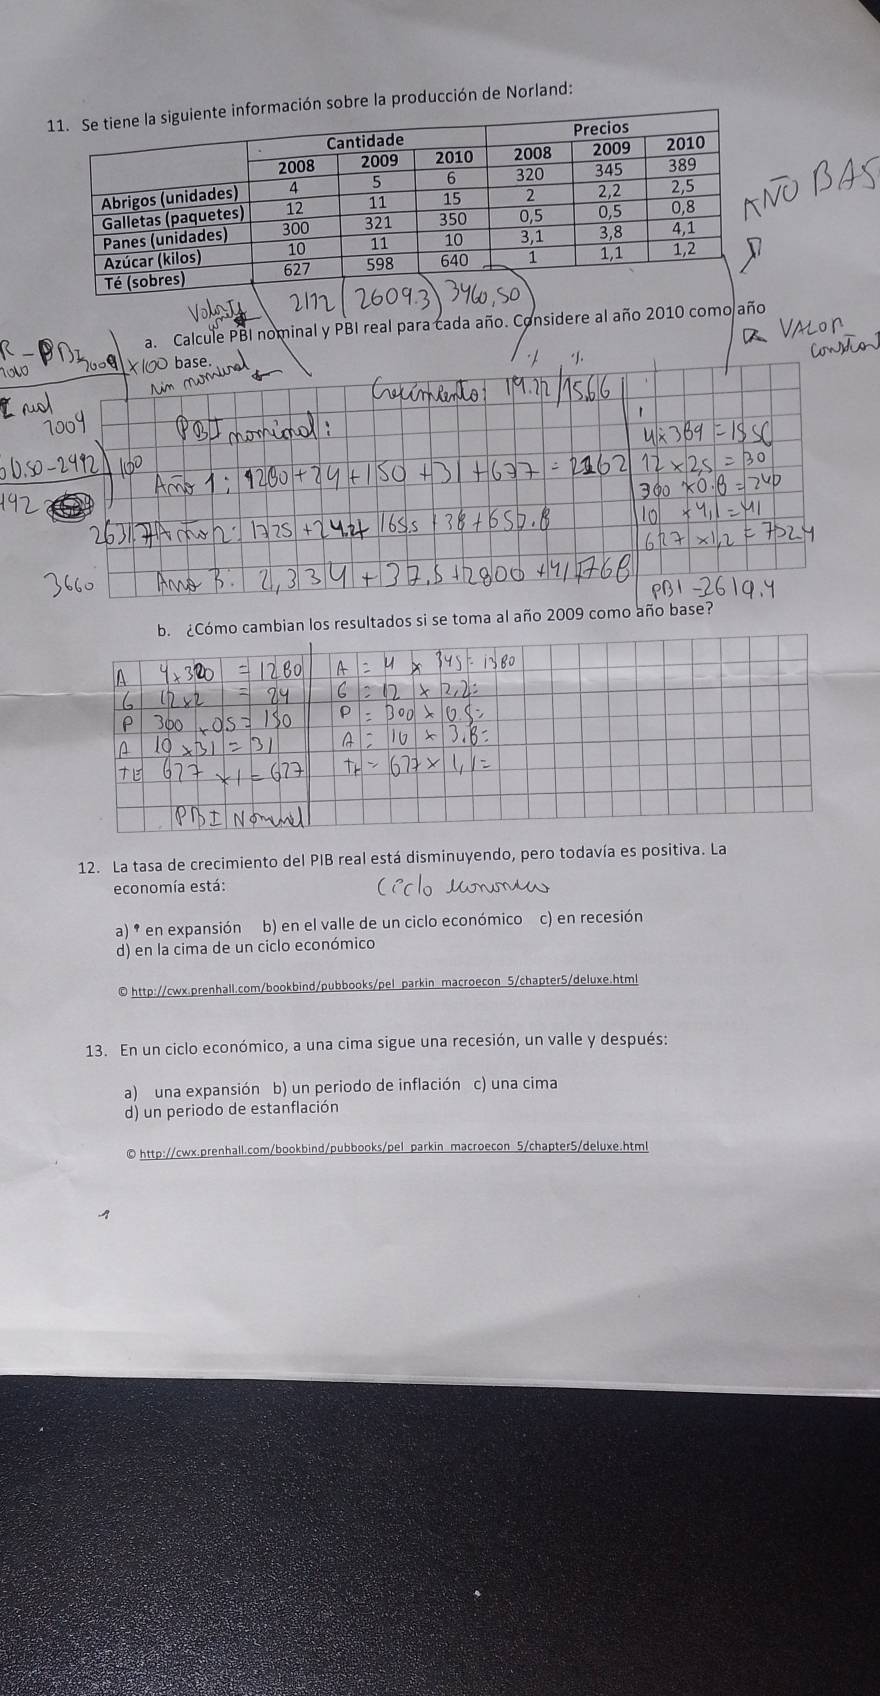 11. Se tiene la siguiente información sobre la producción de Norland:
Cantidade Precios
2008 2009 2010 2008 2009 2010
Abrigos (unidades) 4 5 6 320 345 389
Galletas (paquetes) 12 11 15 2 2,2 2,5
Panes (unidades) 300 321 350 0,5 0,5 0,8
Azúcar (kilos) 10 11 10 3,1 3,8 4,1
Té (sobres) 627 598 640 1 1,1 1,2
AÑO BAS
2112 2609.3 3460,50
a. Calcule PBI nominal y PBI real para cada año. Considere al año 2010 como año
base.
VALOR
x100
Crecimiento: 19.22 15.66
2009
PBI nominal:
4x389 = 1556
60.50-2492 100
Año 1: 1280+24+150+31+627 = 2162
12 x 2,5 = 30
300 x 0.8 = 240
492
2631.7 Año 2: 1725+24.2+165.5+38+657.8
10 x 4,1 = 41
627 x 1,2 = 752.4
3660
Año 3: 2,334+37.5+2800+41+768
PBI - 2619.4
b. ¿Cómo cambian los resultados si se toma al año 2009 como año base?
A 4x320 = 1280 A = 4 x 345 = 1380
G 12x2 = 24 G = 12 x 2,2=
P 300 x 05 = 150 P = 300 x 0.5=
A 10 x 31 = 31 A = 10 x 3.8=
TE 627 x 1 = 627 Te = 627 x 1,1=
PBI Nominal
12. La tasa de crecimiento del PIB real está disminuyendo, pero todavía es positiva. La
economía está:
Ciclo
a) en expansión b) en el valle de un ciclo económico c) en recesión
d) en la cima de un ciclo económico
© http://cwx.prenhall.com/bookbind/pubbooks/pel_parkin_macroecon_5/chapter5/deluxe.html
13. En un ciclo económico, a una cima sigue una recesión, un valle y después:
a) una expansión b) un periodo de inflación c) una cima
d) un periodo de estanflación
© http://cwx.prenhall.com/bookbind/pubbooks/pel_parkin_macroecon_5/chapter5/deluxe.html